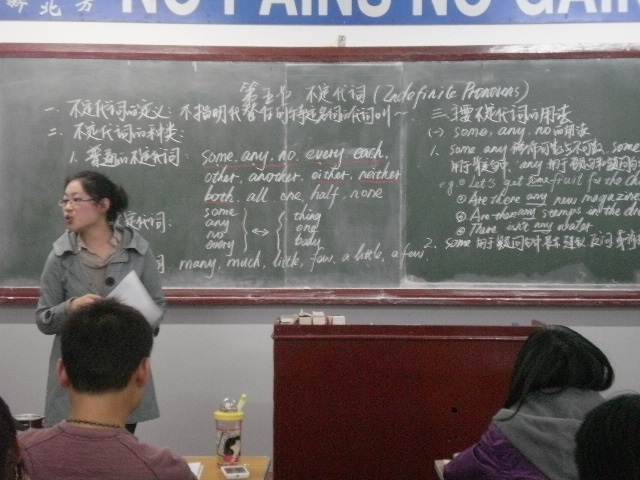 新北方 NO PAINS NO GAIN
第五节 不定代词 (Indefinite Pronouns)
一. 不定代词的定义: 不指明代替任何特定名词的代词叫~
二. 不定代词的种类:
1. 普通的不定代词: some, any, no, every, each,
other, another, either, neither
both, all, one, half, none
代词:
some
any
no
every
↔
thing
one
body
many, much, little, few, a little, a few
三. 主要不定代词的用法
(一) some, any, no 的用法
1. some any
any
e.g. Let's get some fruit for the
Are there any new magazine
Are there any stamps in the
There isn't any water
2. some 用于疑问句中表示